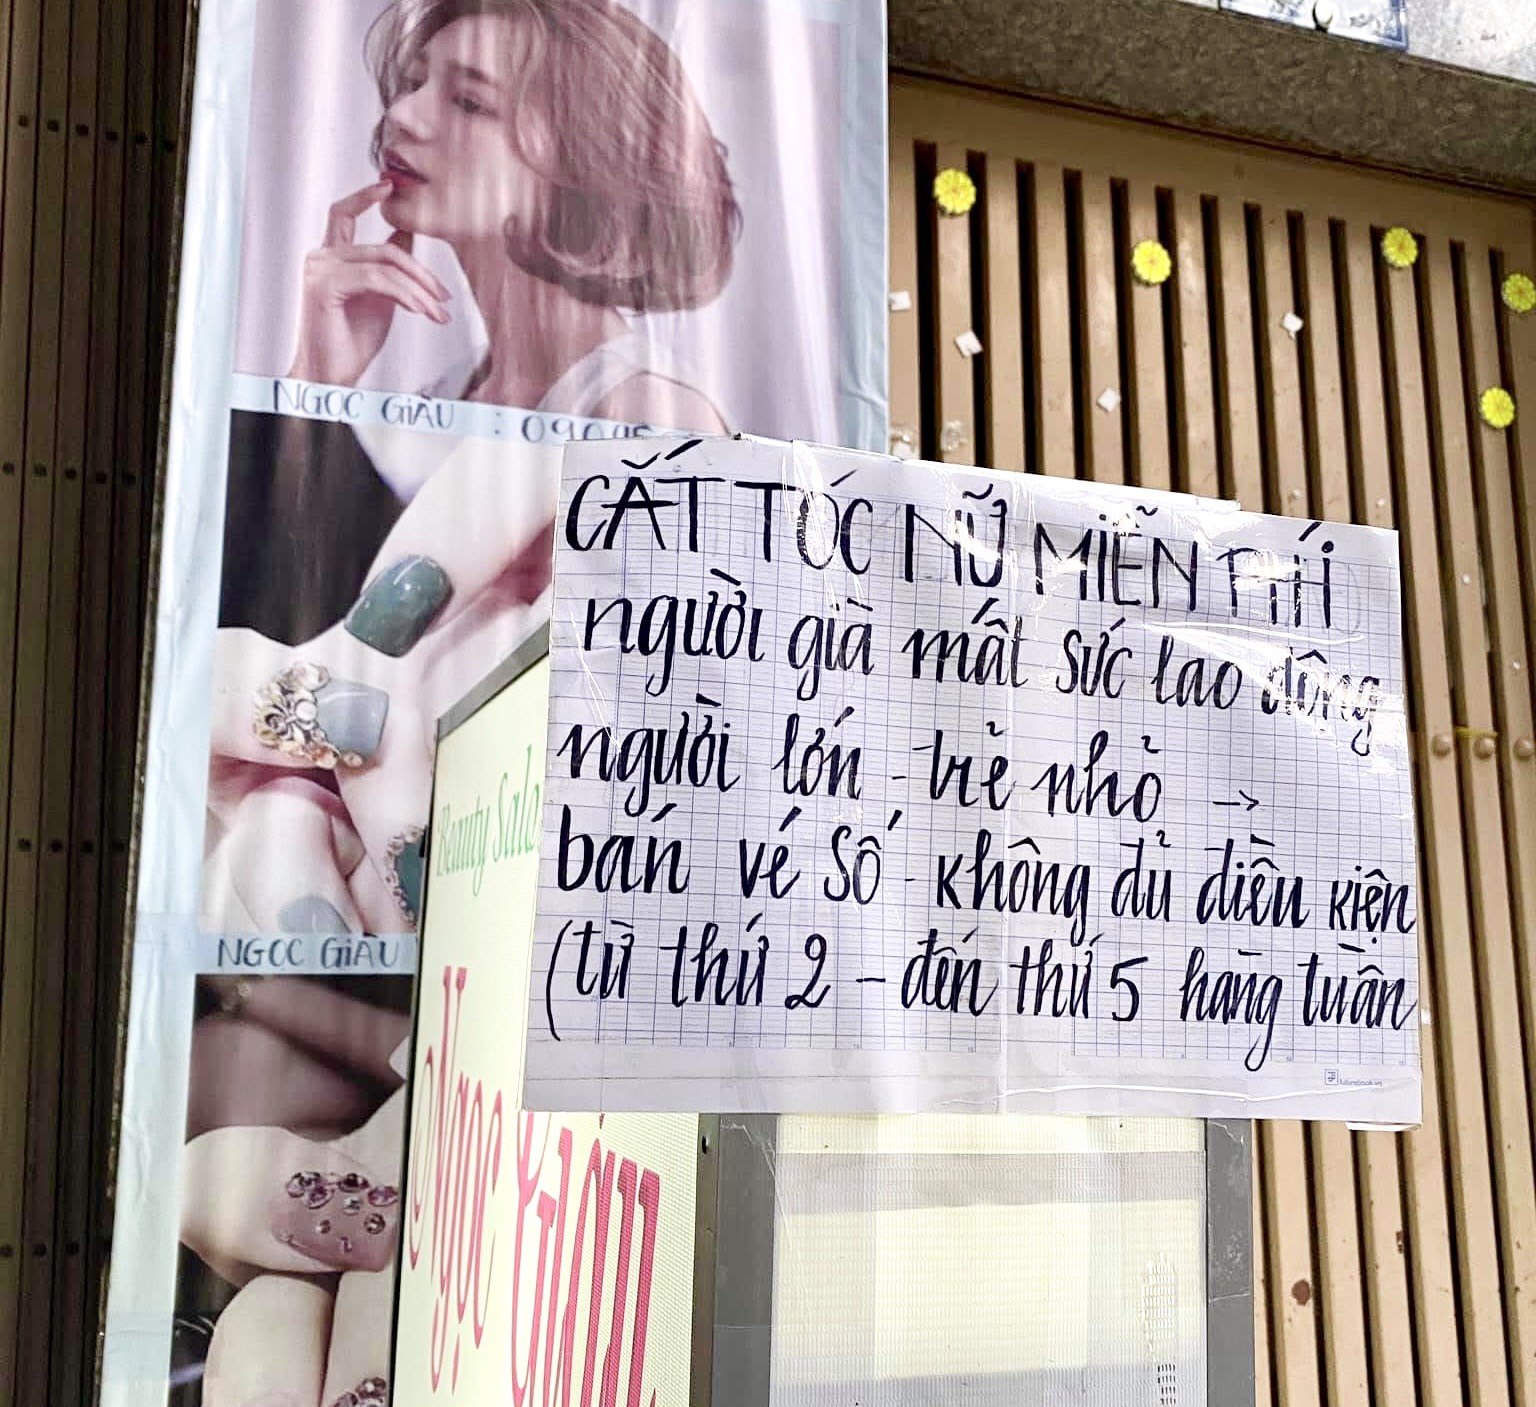 NGỌC GIÀU :
CẮT TÓC NỮ MIỄN PHÍ
người già mất sức lao động
người lớn - trẻ nhỏ →
bán vé số - không đủ điều kiện
(từ thứ 2 - đến thứ 5 hàng tuần
Beauty Salo
NGỌC GIÀU
Ngọc Giàu